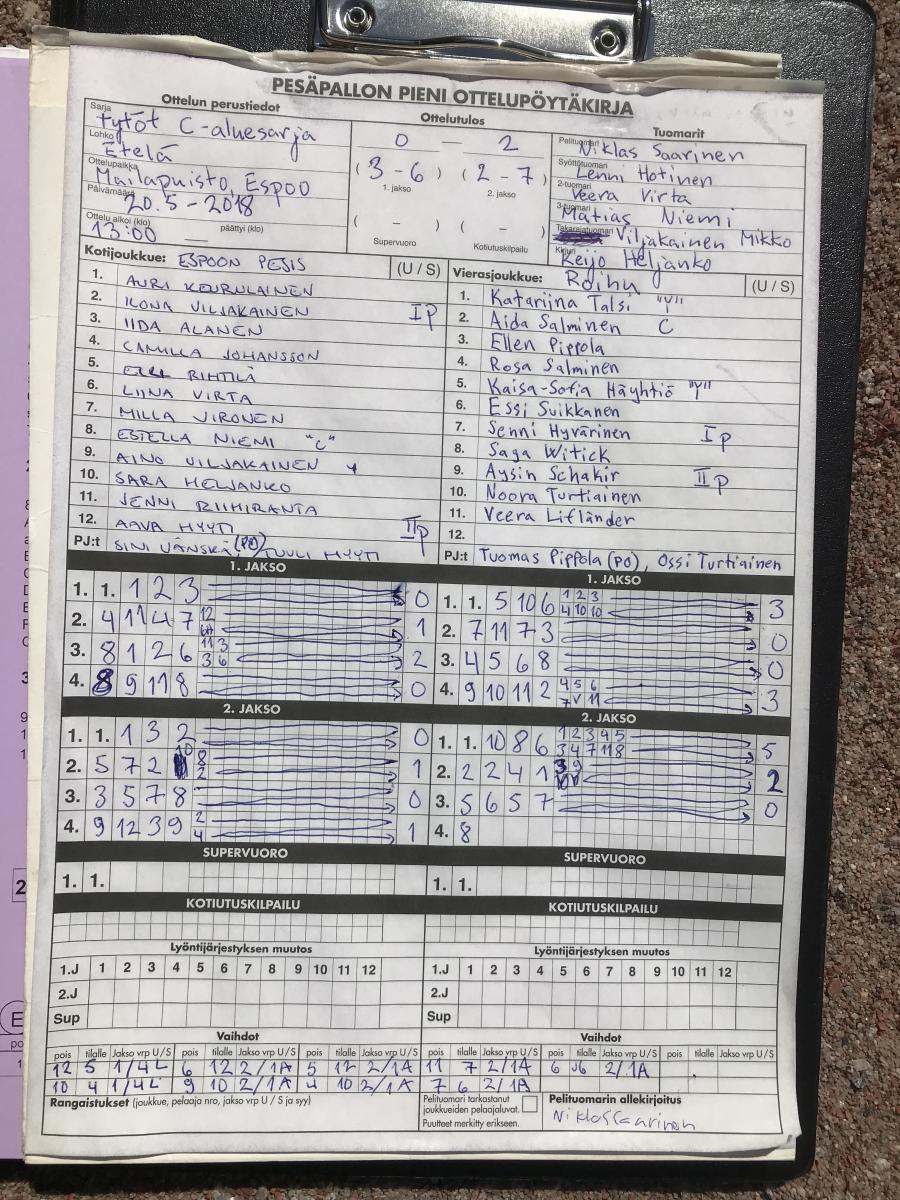 PESÄPALLON PIENI OTTELUPÖYTÄKIRJA
Ottelun perustiedot
Sarja tytöt C-aluesarja
Lohko Etelä
Ottelupaikka Mailapuisto, Espoo
Päivämäärä 20.5-2018
Ottelu alkoi (klo) 13:00 päättyi (klo) —
Ottelutulos
0 — 2
(3-6) (2-7)
1. jakso 2. jakso
( - ) ( - )
Supervuoro Kotiutuskilpailu
Tuomarit
Pelituomari Niklas Saarinen
Syöttötuomari Lenni Hotinen
2-tuomari Veera Virta
3-tuomari Matias Niemi
Takarajatuomari Viljakainen Mikko
Kirjuri Keijo Heljanko
Kotijoukkue: ESPOON PESIS (U / S)
1. AURI KEURULAINEN
2. ILONA VILJAKAINEN I P
3. IIDA ALANEN
4. CAMILLA JOHANSSON
5. RIHTILÄ
6. LIINA VIRTA
7. MILLA VIRONEN
8. ESTELLA NIEMI "C"
9. AINO VILJAKAINEN
10. SARA HELJANKO
11. JENNI RIIHIRANTA
12. AAVA HYYTI II P
PJ:t SINI VÄNSKÄ (PO) TUULI HYYTI
Vierasjoukkue: Roihu (U / S)
1. Katariina Talsi "Y"
2. Aida Salminen C
3. Ellen Pippola
4. Rosa Salminen
5. Kaisa-Sofia Häyhtiö "Y"
6. Essi Suikkanen
7. Senni Hyvärinen I P
8. Saga Witick
9. Aysin Schakir II P
10. Noora Turtiainen
11. Veera Lifländer
12.
PJ:t Tuomas Pippola (PO), Ossi Turtiainen
1. JAKSO
1. 1. 1 2 3 0
2. 4 11 4 7 12 1
3. 8 1 2 6 11 3 3 6 2
4. 8 9 11 8 0
1. JAKSO
1. 1. 5 10 6 1 2 3 4 10 10 3
2. 7 11 7 3 0
3. 4 5 6 8 0
4. 9 10 11 2 4 5 6 7 V 11 3
2. JAKSO
1. 1. 1 3 2 0
2. 5 7 2 10 8 2 1
3. 3 5 7 8 0
4. 9 12 3 9 2 4 1
2. JAKSO
1. 1. 10 8 6 1 2 3 4 5 3 4 7 11 8 5
2. 2 2 4 1 3 9 2
3. 5 6 5 7 0
4. 8
SUPERVUORO
1. 1.
SUPERVUORO
1. 1.
KOTIUTUSKILPAILU
KOTIUTUSKILPAILU
Lyöntijärjestyksen muutos
1.J 1 2 3 4 5 6 7 8 9 10 11 12
2.J
Sup
Lyöntijärjestyksen muutos
1.J 1 2 3 4 5 6 7 8 9 10 11 12
2.J
Sup
Vaihdot
pois tilalle Jakso vrp U/S pois tilalle Jakso vrp U/S pois tilalle Jakso vrp U/S
12 5 1/4L 6 12 2/1A 5 12 2/1A
10 4 1/4L 9 10 2/1A 4 10 2/1A
Vaihdot
pois tilalle Jakso vrp U/S pois tilalle Jakso vrp U/S pois tilalle Jakso vrp U/S
11 7 2/1A 6 2/1A
7 6 2/1A
Rangaistukset (joukkue, pelaaja nro, jakso vrp U / S ja syy)
Pelituomari tarkastanut
joukkueiden pelaajaluvat.
Puutteet merkitty erikseen.
Pelituomarin allekirjoitus
Niklas Saarinen